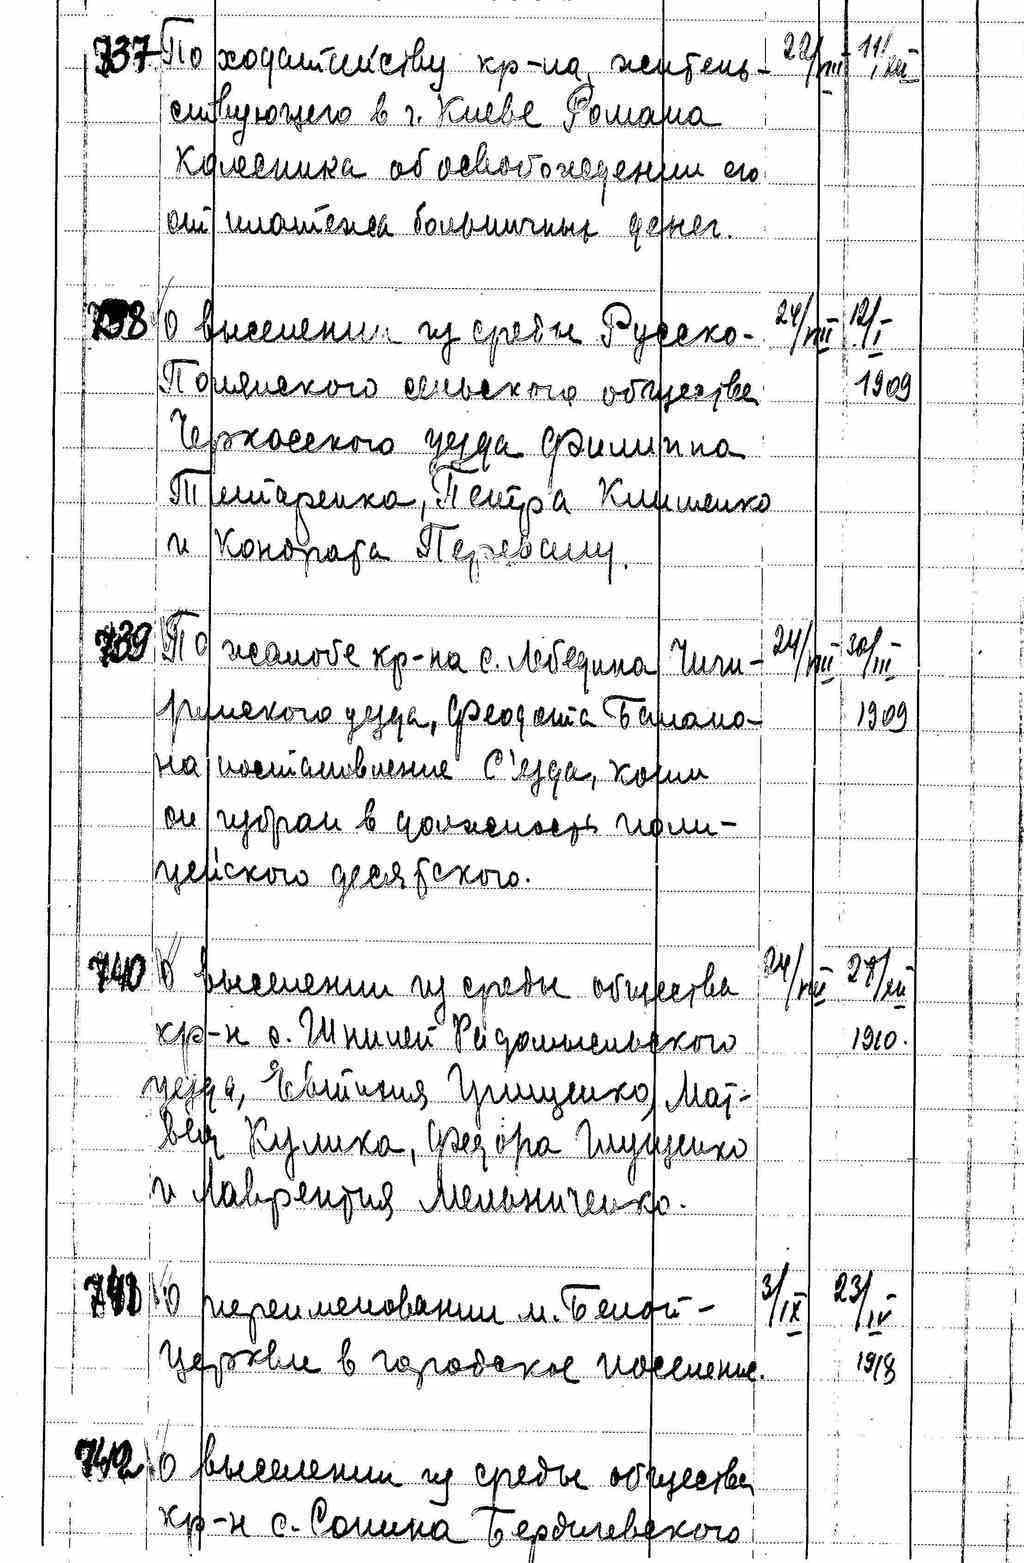 737 По ходатайству кр-на, житель- 22/VIII 11/XII
ствующего в г. Киеве Романа
Колесника об освобождении его
от платежа больничных денег.
738 О выселении из среды Русско- 24/VIII 12/I
Полянского сельского общества 1909
Черкасского уезда Филиппа
Титаренка, Петра Клименко
и Кондрата Перевалу.
739 По жалобе кр-на с. Лебедина Чиги- 24/VIII 30/III
ринского уезда, Феодота Балано- 1909
на постановление С'езда, коим
он избран в должность поли-
цейского десятского.
740 О выселении из среды общества 24/VIII 28/XII
кр-н с. Шпилей Радомысльского 1910.
уезда, Евтихия Грищенко, Мат-
вея Кулика, Федора Глущенко
и Лаврентия Мельниченко.
741 О переименовании м. Белой- 3/IX 23/IV
Церкви в городское поселение. 1918
742 О выселении из среды общества
кр-н с. Сопина Бердичевского